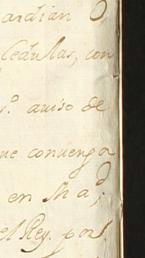 ardian O
Cedulas, con
r.º aviso de
ue convenga
en Mad.
el Rey. por